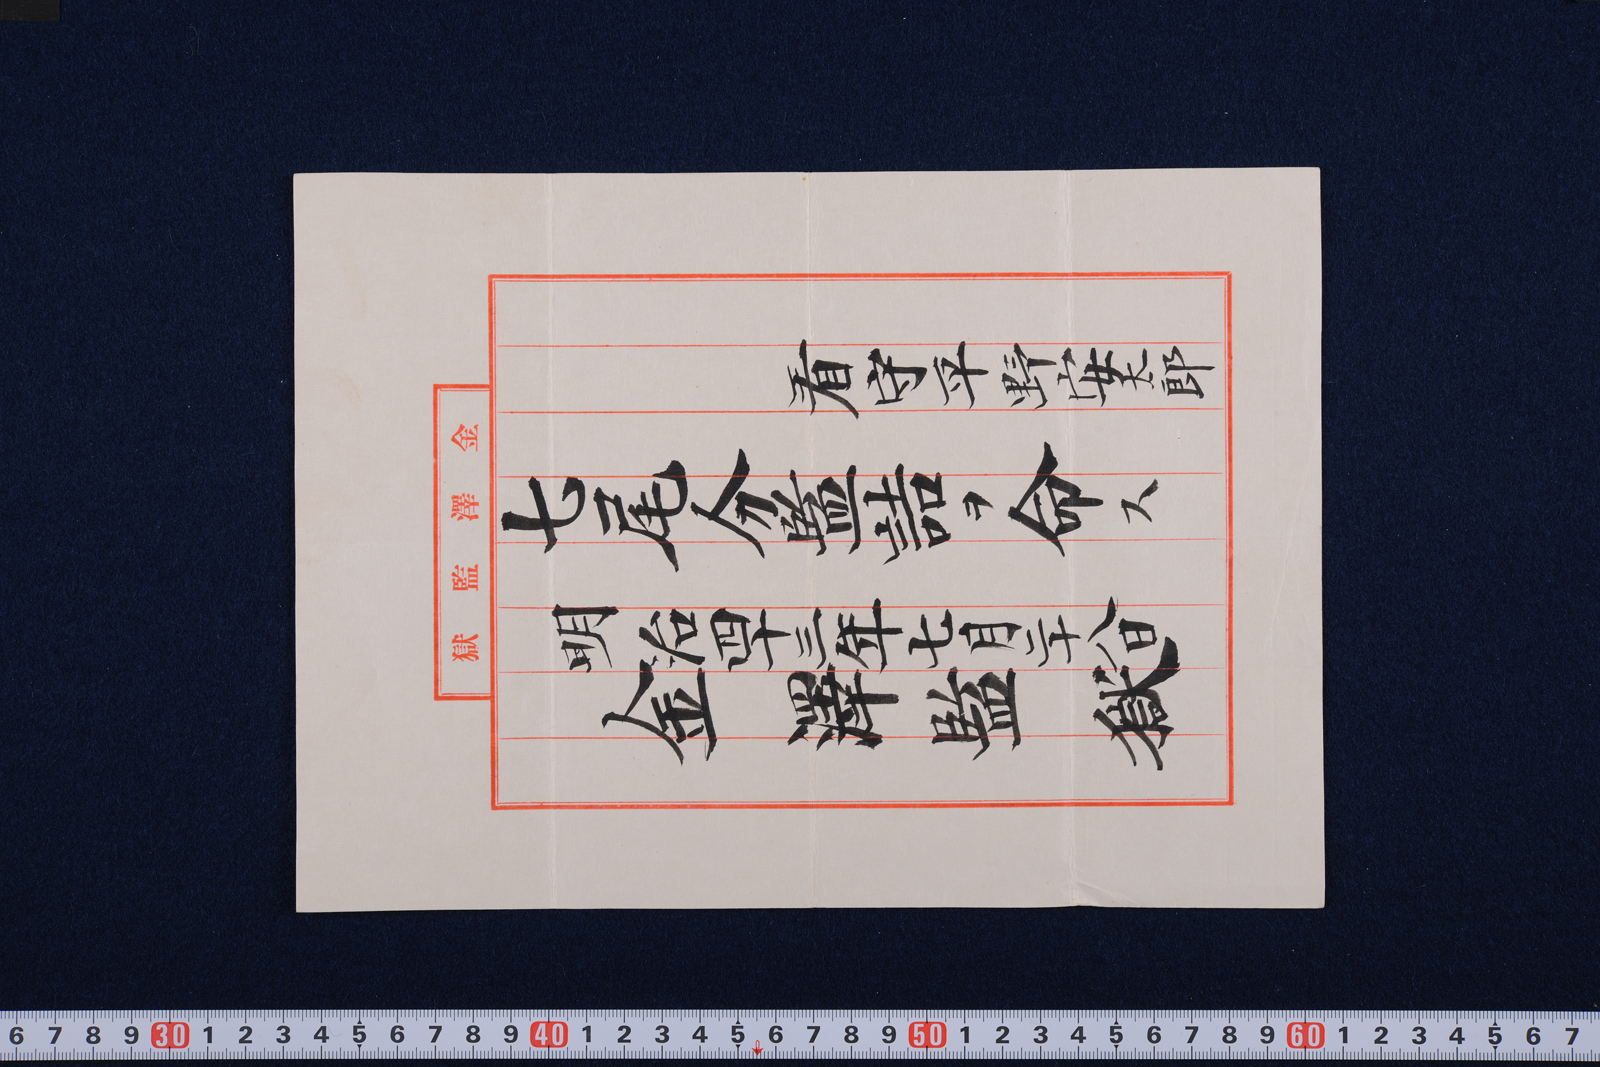 金澤監獄
看守平野安太郎
七尾分監詰ヲ命ス
明治四十三年七月二十八日
金澤監獄
6 7 8 9 30 1 2 3 4 5 6 7 8 9 40 1 2 3 4 5 6 7 8 9 50 1 2 3 4 5 6 7 8 9 60 1 2 3 4 5 6 7